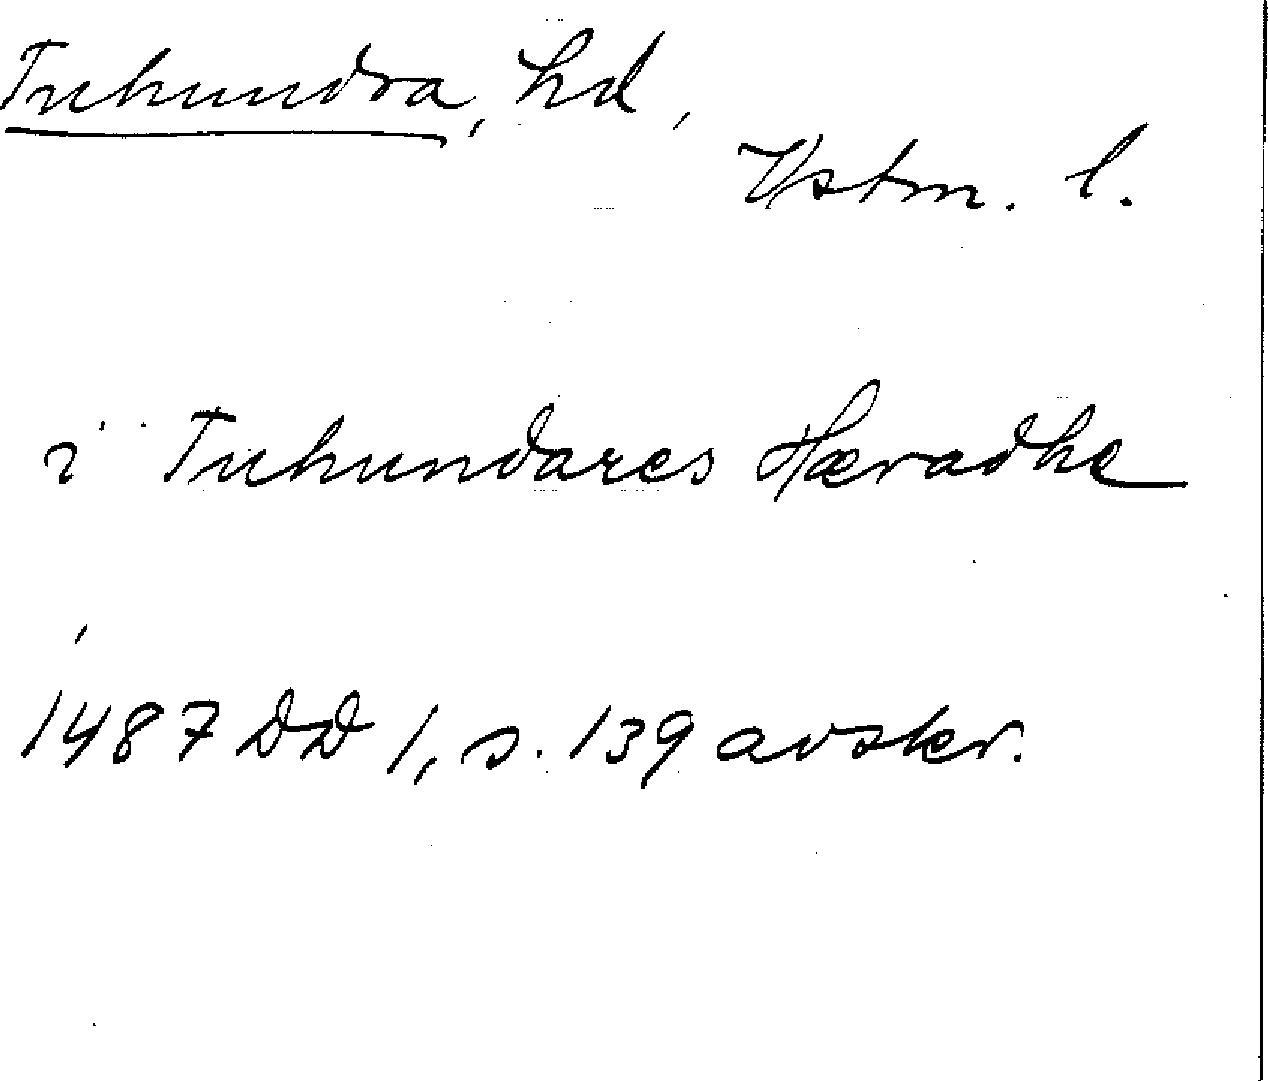 Tuhundra, hd,
Vstm. l.
i Tuhundares Hæradhe
1487 DD 1, s. 139 avskr.